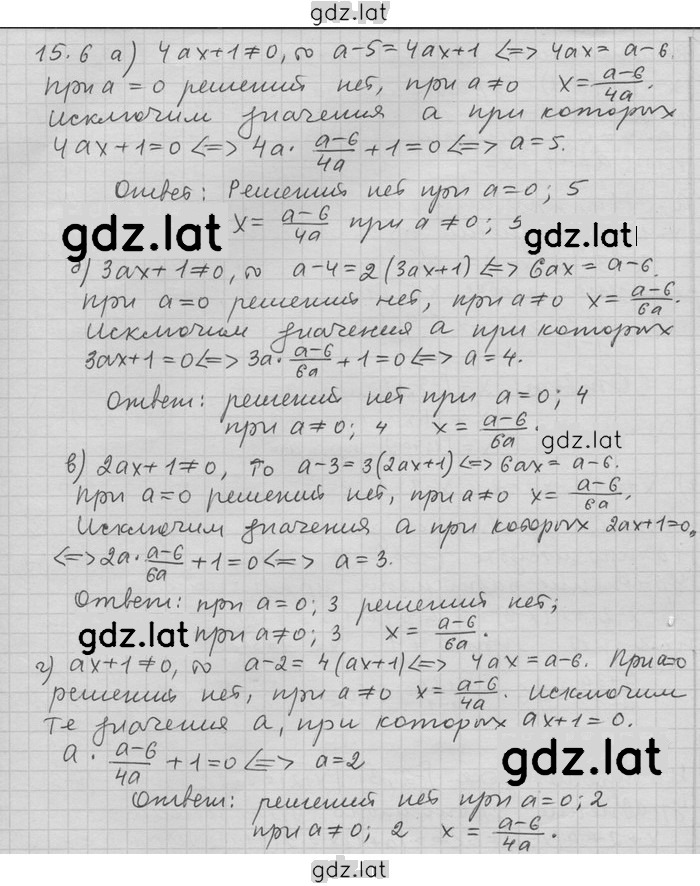 gdz.lat
15.6 а) 4ax+1≠0, то a-5=4ax+1 <=> 4ax=a-6.
При a=0 решений нет, при a≠0 x=\frac{a-6}{4a}.
Исключим значения a при которых
4ax+1=0 <=> 4a·\frac{a-6}{4a}+1=0 <=> a=5.
Ответ: Решений нет при a=0; 5
gdz.lat x=\frac{a-6}{4a} при a≠0; 5 gdz.lat
б) 3ax+1≠0, то a-4=2(3ax+1) <=> 6ax=a-6.
При a=0 решений нет, при a≠0 x=\frac{a-6}{6a}.
Исключим значения a при которых
3ax+1=0 <=> 3a·\frac{a-6}{6a}+1=0 <=> a=4.
Ответ: решений нет при a=0; 4
при a≠0; 4 x=\frac{a-6}{6a}. gdz.lat
в) 2ax+1≠0, то a-3=3(2ax+1) <=> 6ax=a-6.
При a=0 решений нет, при a≠0 x=\frac{a-6}{6a}.
Исключим значения a при которых 2ax+1=0,
<=> 2a·\frac{a-6}{6a}+1=0 <=> a=3.
Ответ: при a=0; 3 решений нет;
gdz.lat при a≠0; 3 x=\frac{a-6}{6a}.
г) ax+1≠0, то a-2=4(ax+1) <=> 4ax=a-6. При a=0
решений нет, при a≠0 x=\frac{a-6}{4a}. Исключим
те значения a, при которых ax+1=0.
a·\frac{a-6}{4a}+1=0 <=> a=2 gdz.lat
Ответ: решений нет при a=0; 2
при a≠0; 2 x=\frac{a-6}{4a}.
gdz.lat